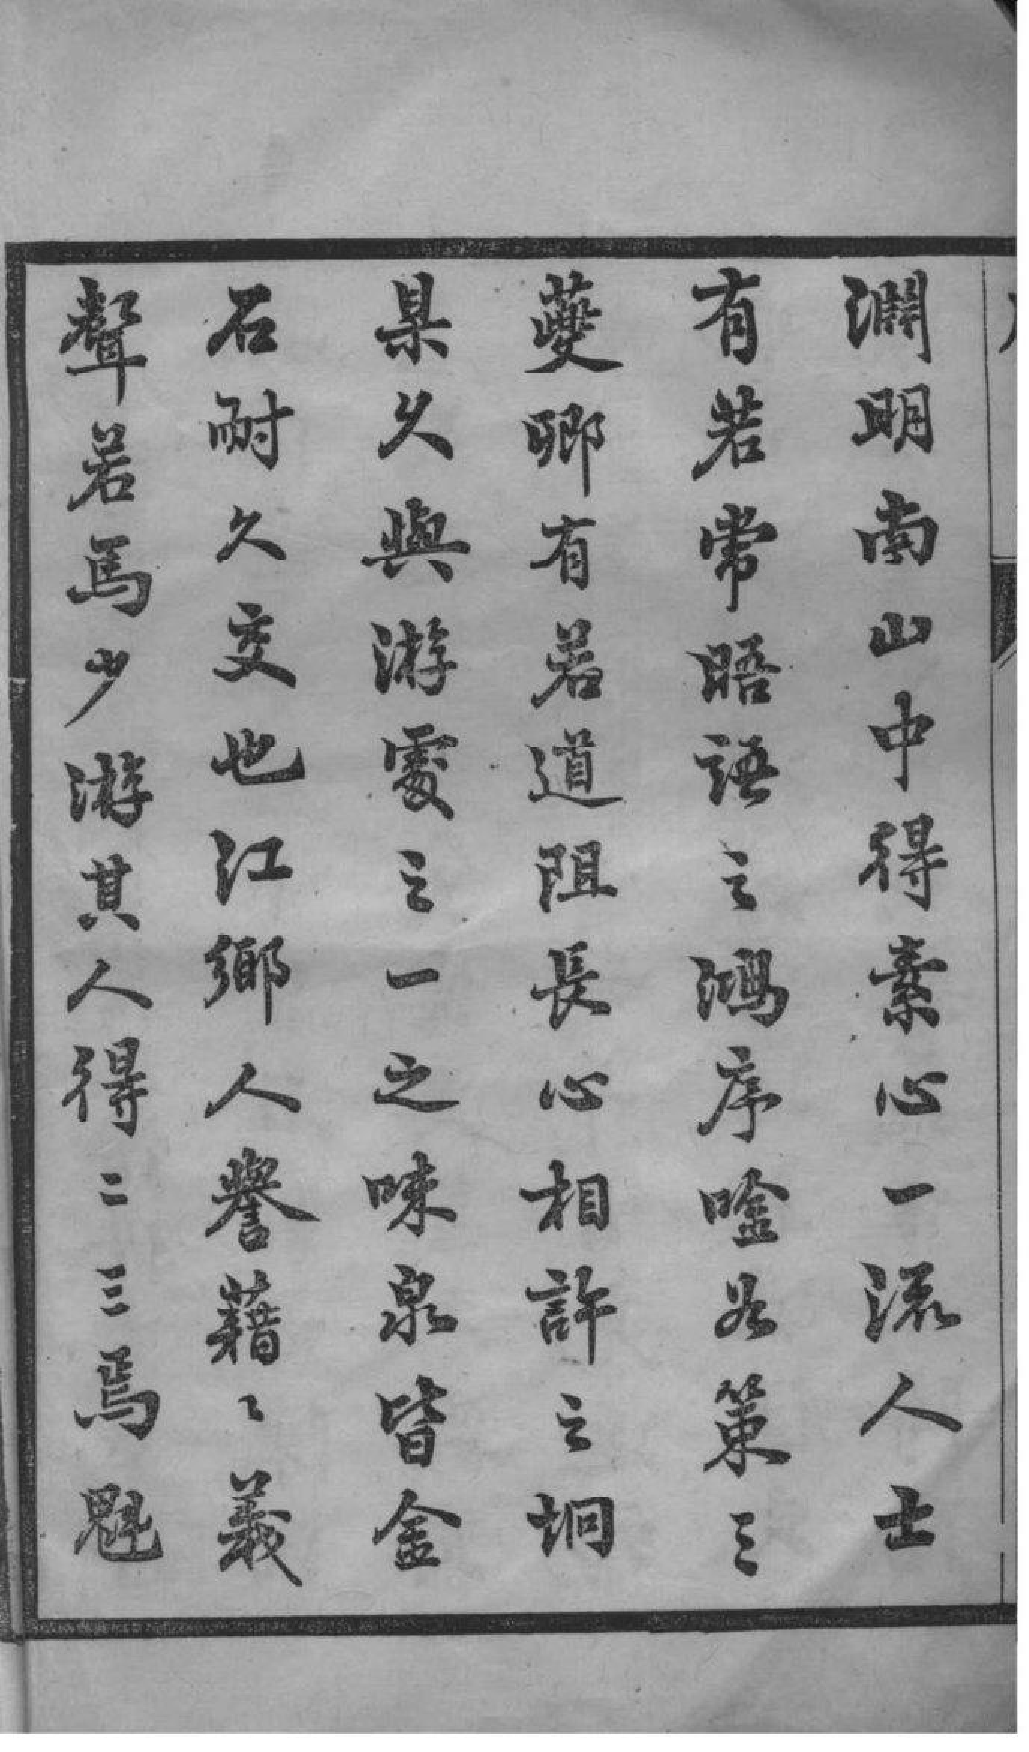 淵明南山中得素心一流人士
有若常晤語之鴻序唫为策三
夔卿有若道阻長心相許之坰
杲久與游處之一之味泉皆金
石耐久交也江鄉人譽藉〻義
聲若馬少游其人得二三焉魁